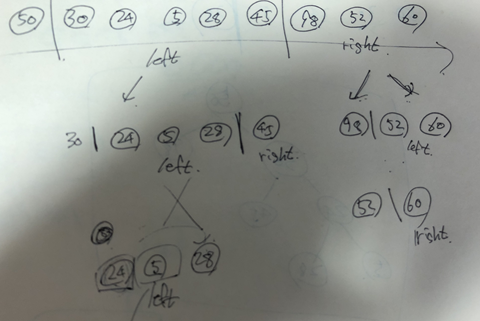 50 | 30 24 5 28 45 | 98 52 60
left right
30 | 24 5 28 | 45 98 | 52 60
left right. left.
52 \ 60
right.
24 5 28
left